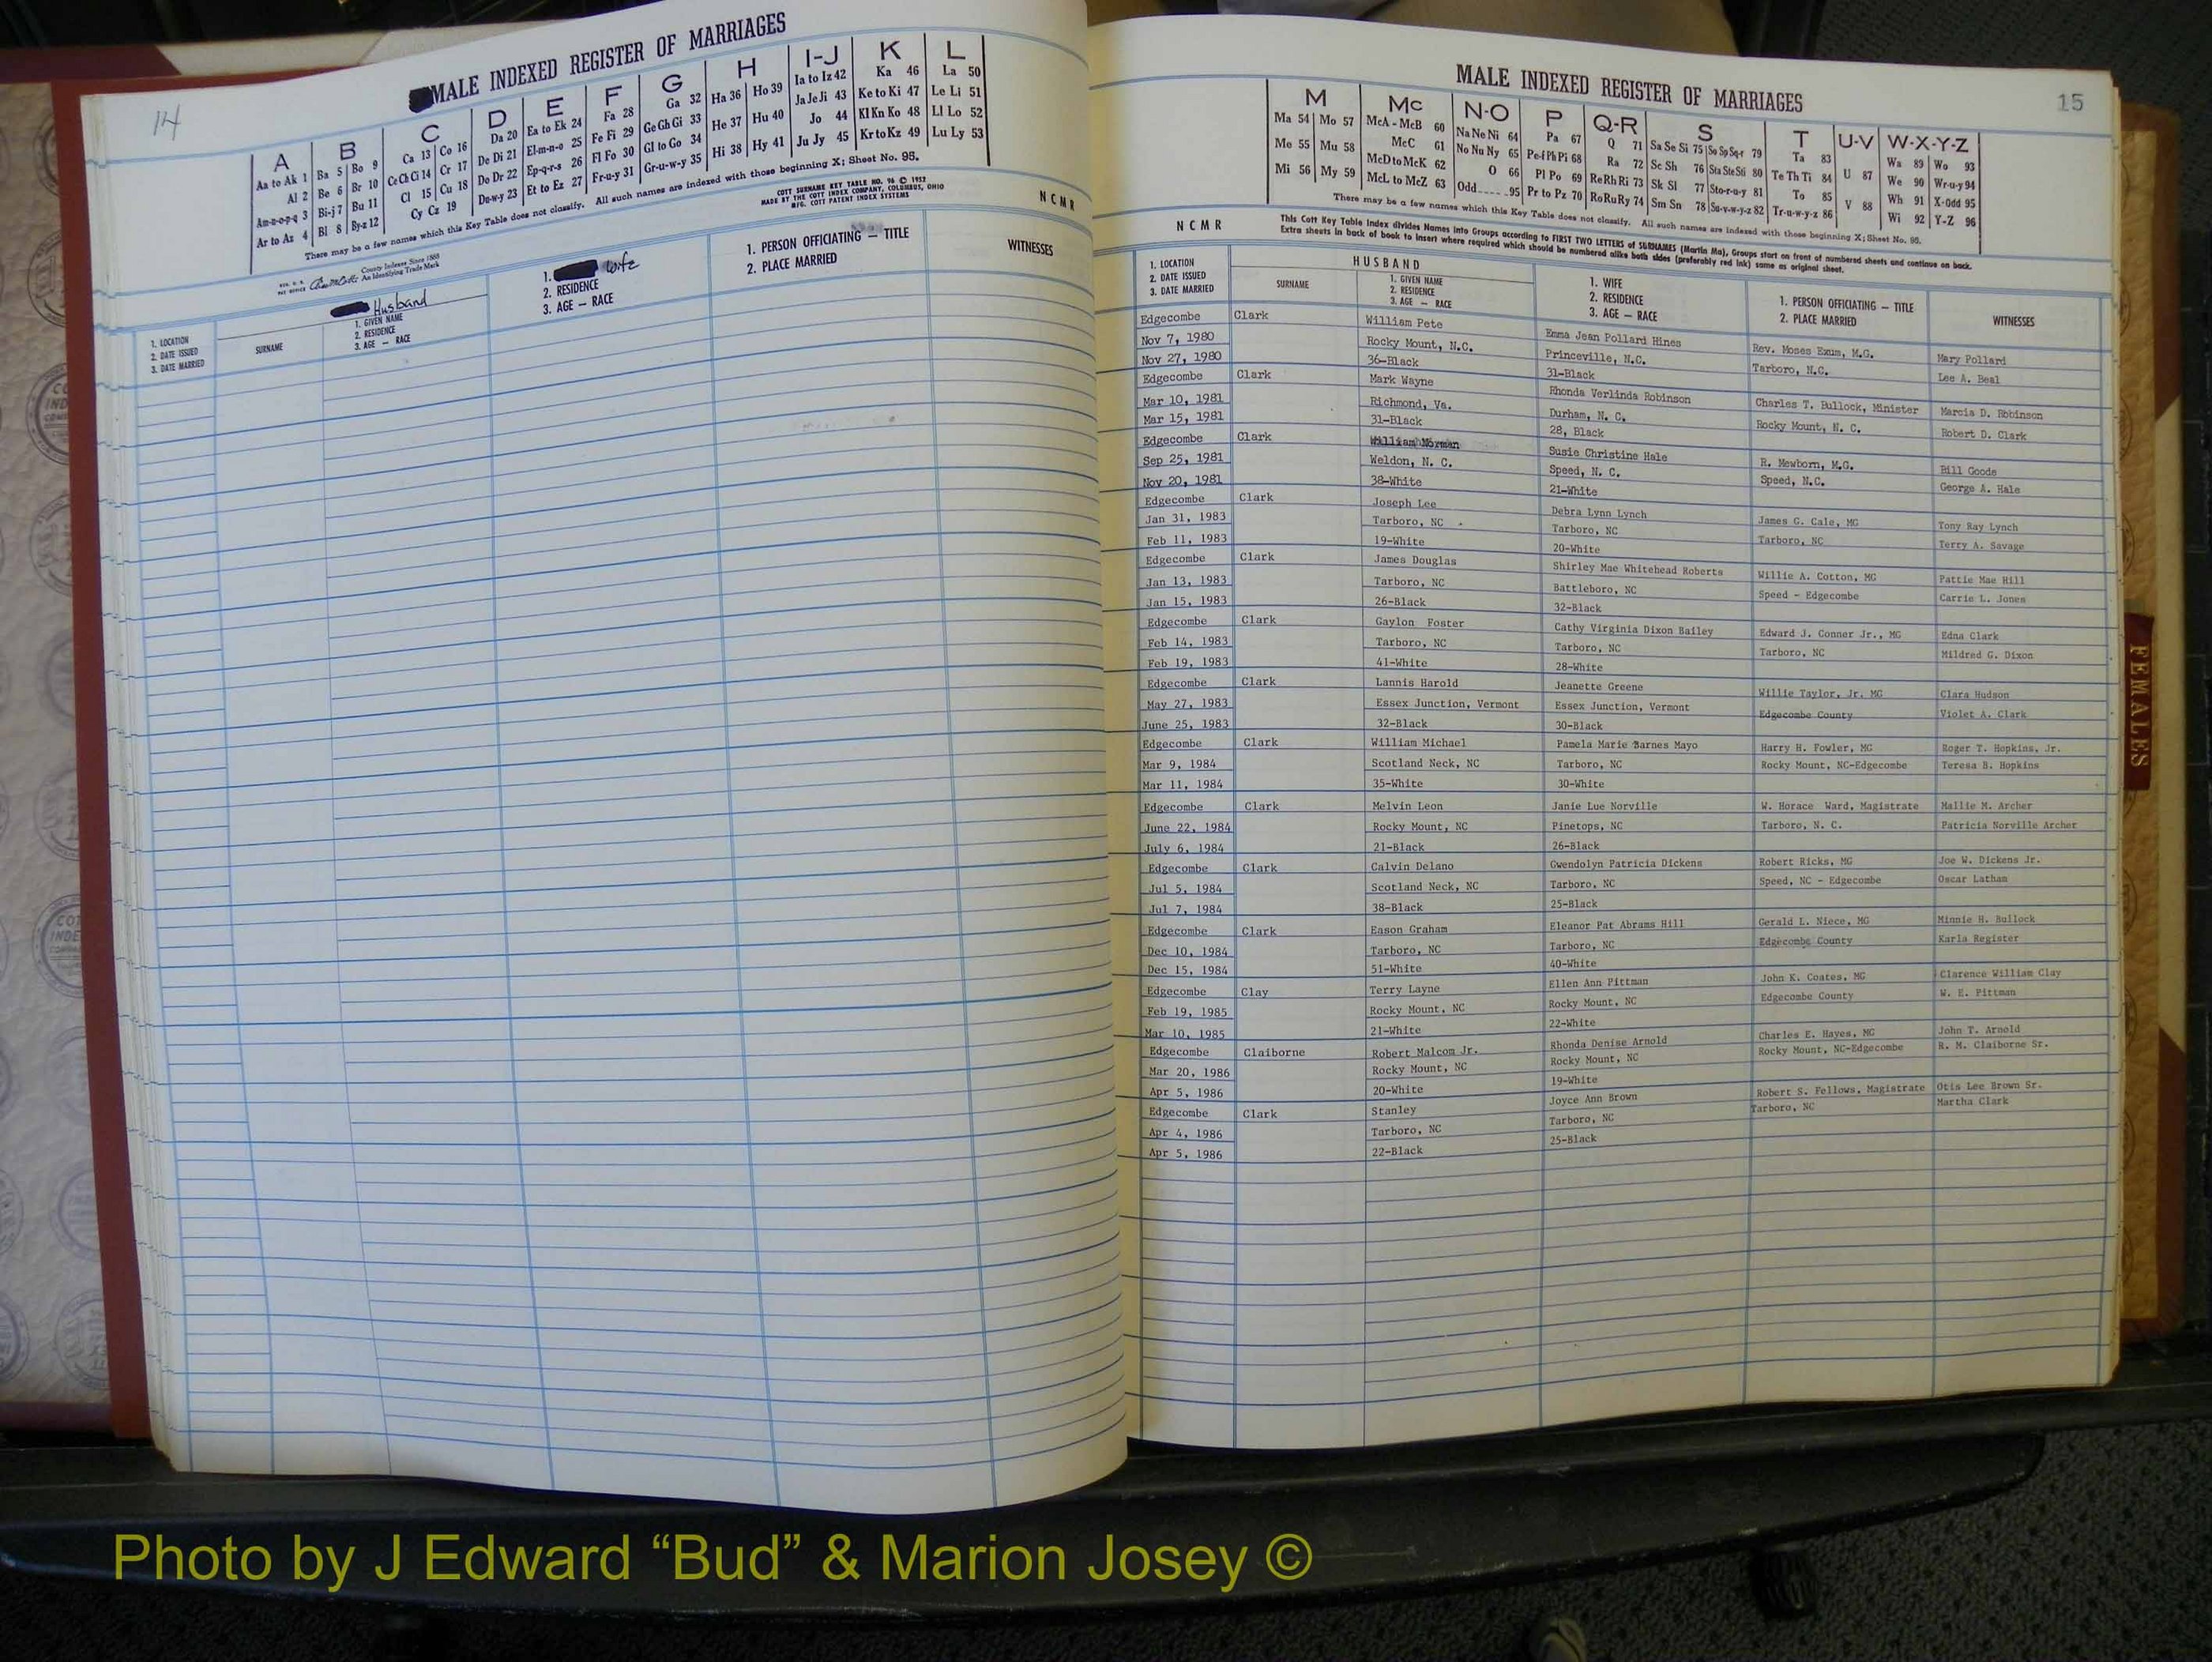 14
MALE INDEXED REGISTER OF MARRIAGES
A B C D E F G H I-J K L
Aa to Ak 1 Ba 5 Bo 9 Ca 13 Co 16 Da 20 Ea to Ek 24 Fa 28 Ga 32 Ha 36 Ho 39 Ia to Iz 42 Ka 46 La 50
Al 2 Be 6 Br 10 Ce Ch Ci 14 Cr 17 De Di 21 El-m-n-o 25 Fe Fi 29 Ge Gh Gi 33 He 37 Hu 40 Ja Je Ji 43 Ke to Ki 47 Le Li 51
Am-n-o-p-q 3 Bi-j 7 Bu 11 Cl 15 Cu 18 Do Dr 22 Ep-q-r-s 26 Fl Fo 30 Gl to Go 34 Hi 38 Hy 41 Jo 44 Kl Kn Ko 48 Ll Lo 52
Ar to Az 4 Bl 8 By-z 12 Cy Cz 19 Du-w-y 23 Et to Ez 27 Fr-u-y 31 Gr-u-w-y 35 Ju Jy 45 Kr to Kz 49 Lu Ly 53
There may be a few names which this Key Table does not classify. All such names are indexed with those beginning X; Sheet No. 95.
COTT SURNAME KEY TABLE NO. 96 © 1952
MADE BY THE COTT INDEX COMPANY, COLUMBUS, OHIO
MFG. COTT PATENT INDEX SYSTEMS
N C M R
County Indexes Since 1888
An Identifying Trade Mark
1. LOCATION
2. DATE ISSUED
3. DATE MARRIED
SURNAME
Husband
1. GIVEN NAME
2. RESIDENCE
3. AGE — RACE
1. Wife
2. RESIDENCE
3. AGE — RACE
1. PERSON OFFICIATING — TITLE
2. PLACE MARRIED
WITNESSES
MALE INDEXED REGISTER OF MARRIAGES
15
M Mc N-O P Q-R S T U-V W-X-Y-Z
Ma 54 Mo 57 McA - McB 60 Na Ne Ni 64 Pa 67 Q 71 Sa Se Si 75 So Sp Sq-r 79 Ta 83 U 87 Wa 89 Wo 93
Me 55 Mu 58 McC 61 No Nu Ny 65 Pe-f Ph Pi 68 Ra 72 Sc Sh 76 Sta Ste Sti 80 Te Th Ti 84 V 88 We 90 Wr-u-y 94
Mi 56 My 59 McD to McK 62 O 66 Pl Po 69 Re Rh Ri 73 Sk Sl 77 Sto-r-u-y 81 To 85 Wh 91 X-Odd 95
McL to McZ 63 Odd 95 Pr to Pz 70 Ro Ru Ry 74 Sm Sn 78 Su-v-w-y-z 82 Tr-u-w-y-z 86 Wi 92 Y-Z 96
There may be a few names which this Key Table does not classify. All such names are indexed with those beginning X; Sheet No. 95.
This Cott Key Table Index divides Names into Groups according to FIRST TWO LETTERS of SURNAMES (Martin Ma), Groups start on front of numbered sheets and continue on back.
Extra sheets in back of book to insert where required which should be numbered alike both sides (preferably red ink) same as original sheet.
N C M R
1. LOCATION
2. DATE ISSUED
3. DATE MARRIED
HUSBAND
SURNAME
1. GIVEN NAME
2. RESIDENCE
3. AGE — RACE
1. WIFE
2. RESIDENCE
3. AGE — RACE
1. PERSON OFFICIATING — TITLE
2. PLACE MARRIED
WITNESSES
Edgecombe Clark William Pete Emma Jean Pollard Hines Rev. Moses Exum, M.G. Mary Pollard
Nov 7, 1980 Rocky Mount, N.C. Princeville, N.C. Tarboro, N.C. Lee A. Beal
Nov 27, 1980 36-Black 31-Black
Edgecombe Clark Mark Wayne Rhonda Verlinda Robinson Charles T. Bullock, Minister Marcia D. Robinson
Mar 10, 1981 Richmond, Va. Durham, N. C. Rocky Mount, N. C. Robert D. Clark
Mar 15, 1981 31-Black 28, Black
Edgecombe Clark William Norman Susie Christine Hale R. Mewborn, M.G. Bill Goode
Sep 25, 1981 Weldon, N. C. Speed, N. C. Speed, N.C. George A. Hale
Nov 20, 1981 38-White 21-White
Edgecombe Clark Joseph Lee Debra Lynn Lynch James G. Cale, MG Tony Ray Lynch
Jan 31, 1983 Tarboro, NC Tarboro, NC Tarboro, NC Terry A. Savage
Feb 11, 1983 19-White 20-White
Edgecombe Clark James Douglas Shirley Mae Whitehead Roberts Willie A. Cotton, MG Pattie Mae Hill
Jan 13, 1983 Tarboro, NC Battleboro, NC Speed - Edgecombe Carrie L. Jones
Jan 15, 1983 26-Black 32-Black
Edgecombe Clark Gaylon Foster Cathy Virginia Dixon Bailey Edward J. Conner Jr., MG Edna Clark
Feb 14, 1983 Tarboro, NC Tarboro, NC Tarboro, NC Mildred G. Dixon
Feb 19, 1983 41-White 28-White
Edgecombe Clark Lannis Harold Jeanette Greene Willie Taylor, Jr. MG Clara Hudson
May 27, 1983 Essex Junction, Vermont Essex Junction, Vermont Edgecombe County Violet A. Clark
June 25, 1983 32-Black 30-Black
Edgecombe Clark William Michael Pamela Marie Barnes Mayo Harry H. Fowler, MG Roger T. Hopkins, Jr.
Mar 9, 1984 Scotland Neck, NC Tarboro, NC Rocky Mount, NC-Edgecombe Teresa B. Hopkins
Mar 11, 1984 35-White 30-White
Edgecombe Clark Melvin Leon Janie Lue Norville W. Horace Ward, Magistrate Mallie M. Archer
June 22, 1984 Rocky Mount, NC Pinetops, NC Tarboro, N. C. Patricia Norville Archer
July 6, 1984 21-Black 26-Black
Edgecombe Clark Calvin Delano Gwendolyn Patricia Dickens Robert Ricks, MG Joe W. Dickens Jr.
Jul 5, 1984 Scotland Neck, NC Tarboro, NC Speed, NC - Edgecombe Oscar Latham
Jul 7, 1984 38-Black 25-Black
Edgecombe Clark Eason Graham Eleanor Pat Abrams Hill Gerald L. Niece, MG Minnie H. Bullock
Dec 10, 1984 Tarboro, NC Tarboro, NC Edgecombe County Karla Register
Dec 15, 1984 51-White 40-White
Edgecombe Clay Terry Layne Ellen Ann Pittman John K. Coates, MG Clarence William Clay
Feb 19, 1985 Rocky Mount, NC Rocky Mount, NC Edgecombe County W. E. Pittman
Mar 10, 1985 21-White 22-White
Edgecombe Claiborne Robert Malcom Jr. Rhonda Denise Arnold Charles E. Hayes, MG John T. Arnold
Mar 20, 1986 Rocky Mount, NC Rocky Mount, NC Rocky Mount, NC-Edgecombe R. M. Claiborne Sr.
Apr 5, 1986 20-White 19-White
Edgecombe Clark Stanley Joyce Ann Brown Robert S. Fellows, Magistrate Otis Lee Brown Sr.
Apr 4, 1986 Tarboro, NC Tarboro, NC Tarboro, NC Martha Clark
Apr 5, 1986 22-Black 25-Black
FEMALES
Photo by J Edward “Bud” & Marion Josey ©